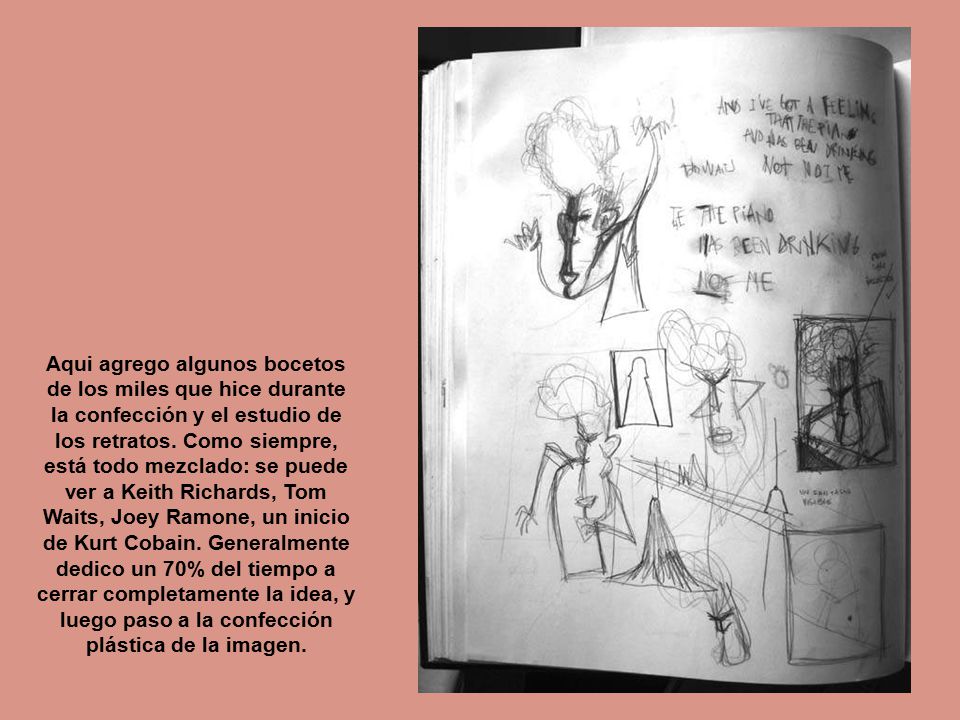 Aqui agrego algunos bocetos
de los miles que hice durante
la confección y el estudio de
los retratos. Como siempre,
está todo mezclado: se puede
ver a Keith Richards, Tom
Waits, Joey Ramone, un inicio
de Kurt Cobain. Generalmente
dedico un 70% del tiempo a
cerrar completamente la idea, y
luego paso a la confección
plástica de la imagen.
AND I'VE GOT A FEELING
THAT THE PIANO
AND HAS BEEN DRINKING
NOT NOT ME
THE PIANO
HAS BEEN DRINKING
NOT ME
UN FANTASMA
VISIBLE